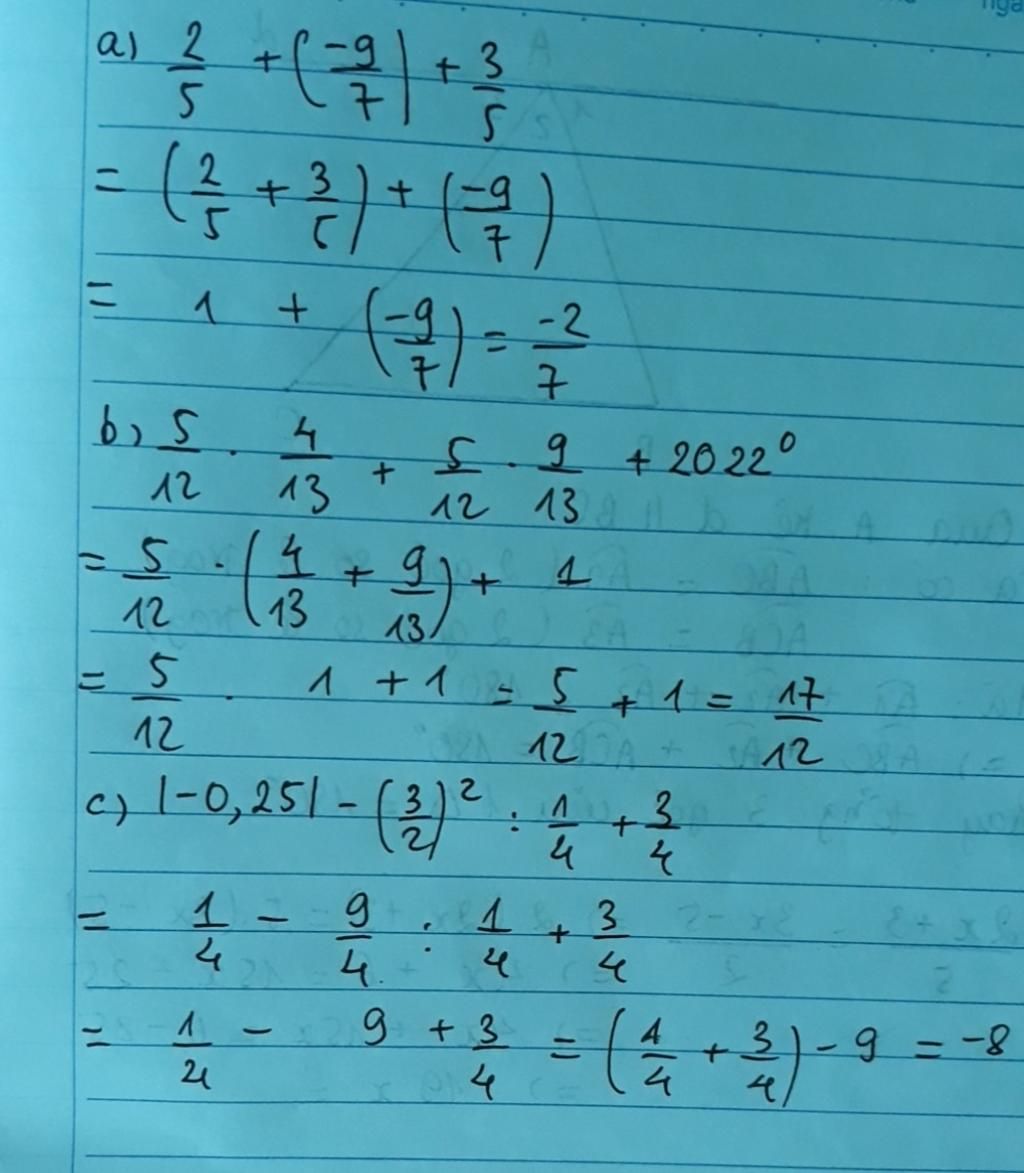 a) 2/5 + (-9/7) + 3/5
= (2/5 + 3/5) + (-9/7)
= 1 + (-9/7) = -2/7
b) 5/12 . 4/13 + 5/12 . 9/13 + 2022⁰
= 5/12 . (4/13 + 9/13) + 1
= 5/12 . 1 + 1 = 5/12 + 1 = 17/12
c) |-0,25| - (3/2)² : 1/4 + 3/4
= 1/4 - 9/4 : 1/4 + 3/4
= 1/4 - 9 + 3/4 = (1/4 + 3/4) - 9 = -8